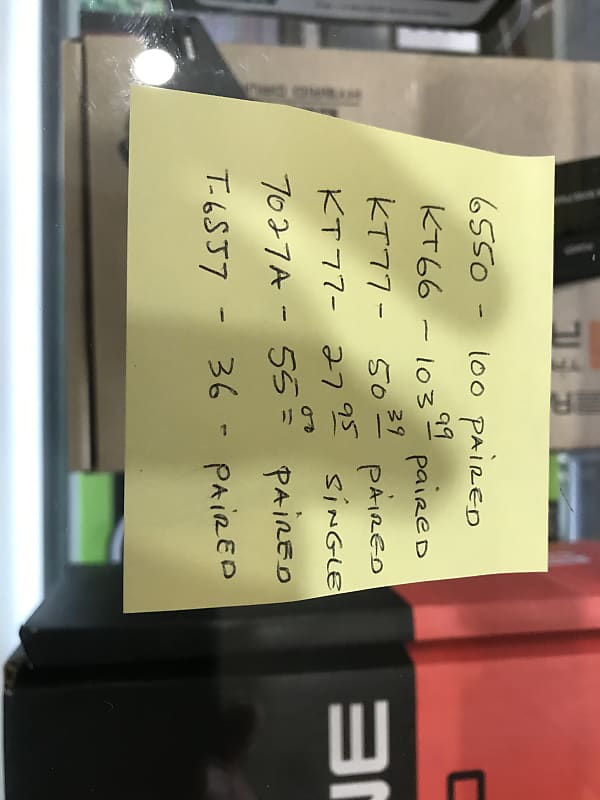 6550 - 100 PAIRED
KT66 - 103 99 PAIRED
KT77 - 50 39 PAIRED
KT77 - 27 95 SINGLE
7027A - 55 00 PAIRED
T-6SJ7 - 36 - PAIRED
NE